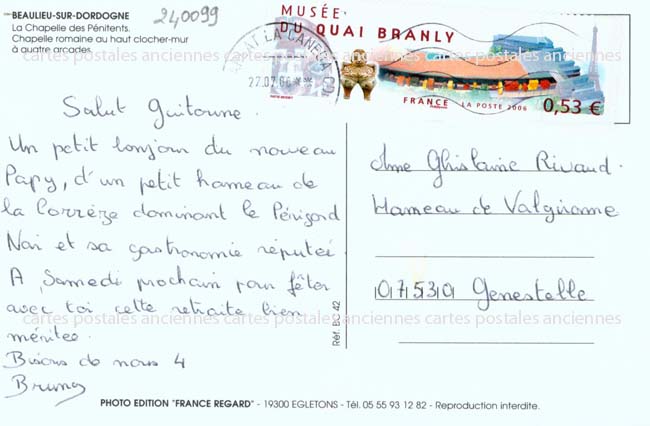 BEAULIEU-SUR-DORDOGNE
La Chapelle des Pénitents.
Chapelle romaine au haut clocher-mur
à quatre arcades.
240099
MUSÉE
DU QUAI BRANLY
FRANCE
LA POSTE 2006
0,53 €
Salut Guitoune.
Un petit bonjour du nouveau
Papy, d'un petit hameau de
la Corrèze dominant le Périgord
Noir et sa gastronomie réputée
A Samedi prochain pour fêter
avec toi cette retraite bien
méritée.
Bisous de nous 4
Bruno
Mme Ghislaine Rivaud.
Hameau de Valgironne
07530 Genestelle
Réf. BC 42
cartes postales anciennes cartes postales anciennes cartes postales anciennes cartes postales anciennes
cartes postales anciennes cartes postales anciennes cartes postales anciennes cartes postales anciennes
PHOTO EDITION "FRANCE REGARD" - 19300 EGLETONS - Tél. 05 55 93 12 82 - Reproduction interdite.